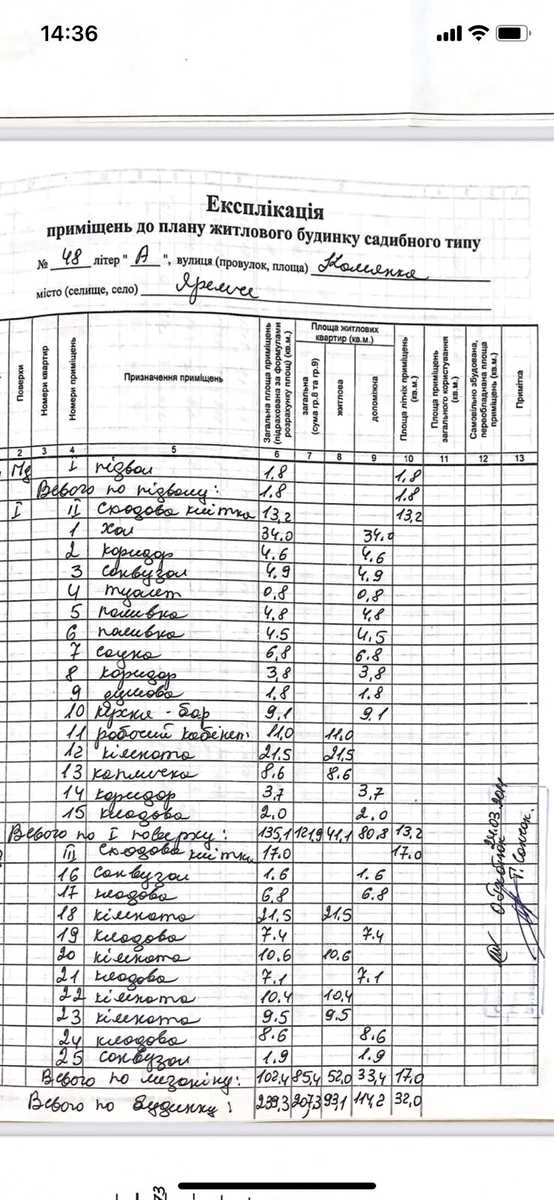 14:36
Експлікація
приміщень до плану житлового будинку садибного типу
№ 48 літер " А ", вулиця (провулок, площа)
місто (селище, село) Яремче
Поверхи
Номери квартир
Номери приміщень
Призначення приміщень
Загальна площа приміщень (підрахована за формулами розрахунку площ) (кв.м.)
Площа житлових квартир (кв.м.)
загальна (сума гр.8 та гр.9)
житлова
допоміжна
Площа літніх приміщень (кв.м.)
Площа приміщень загального користування (кв.м.)
Самовільно збудована, переобладнана площа приміщень (кв.м.)
Примітка
2 3 4 5 6 7 8 9 10 11 12 13
Пд I підвал 1,8 1,8
Всього по підвалу: 1.8 1.8
I II сходова клітка 13,2 13,2
1 хол 34.0 34.0
2 коридор 4.6 4.6
3 санвузол 4.9 4.9
4 туалет 0,8 0,8
5 паливна 4,8 4,8
6 паливна 4.5 4,5
7 сауна 6,8 6.8
8 коридор 3,8 3,8
9 душова 1.8 1.8
10 кухня - бар 9,1 9.1
11 робочий кабінет 11,0 11,0
12 кімната 21,5 21,5
13 капличка 8.6 8.6
14 коридор 3,7 3,7
15 кладова 2.0 2.0
Всього по I поверху: 135,1 121,9 41,1 80,8 13,2
III сходова клітка 17.0 17.0
16 санвузол 1.6 1.6
17 кладова 6,8 6.8
18 кімната 21,5 21,5
19 кладова 7.4 7.4
20 кімната 10.6 10.6
21 кладова 7.1 7.1
22 кімната 10,4 10,4
23 кімната 9.5 9.5
24 кладова 8.6 8.6
25 санвузол 1.9 1.9
Всього по мезоніну: 102,4 85,4 52,0 33,4 17,0
Всього по будинку: 239,3 207,3 93,1 114,2 32,0